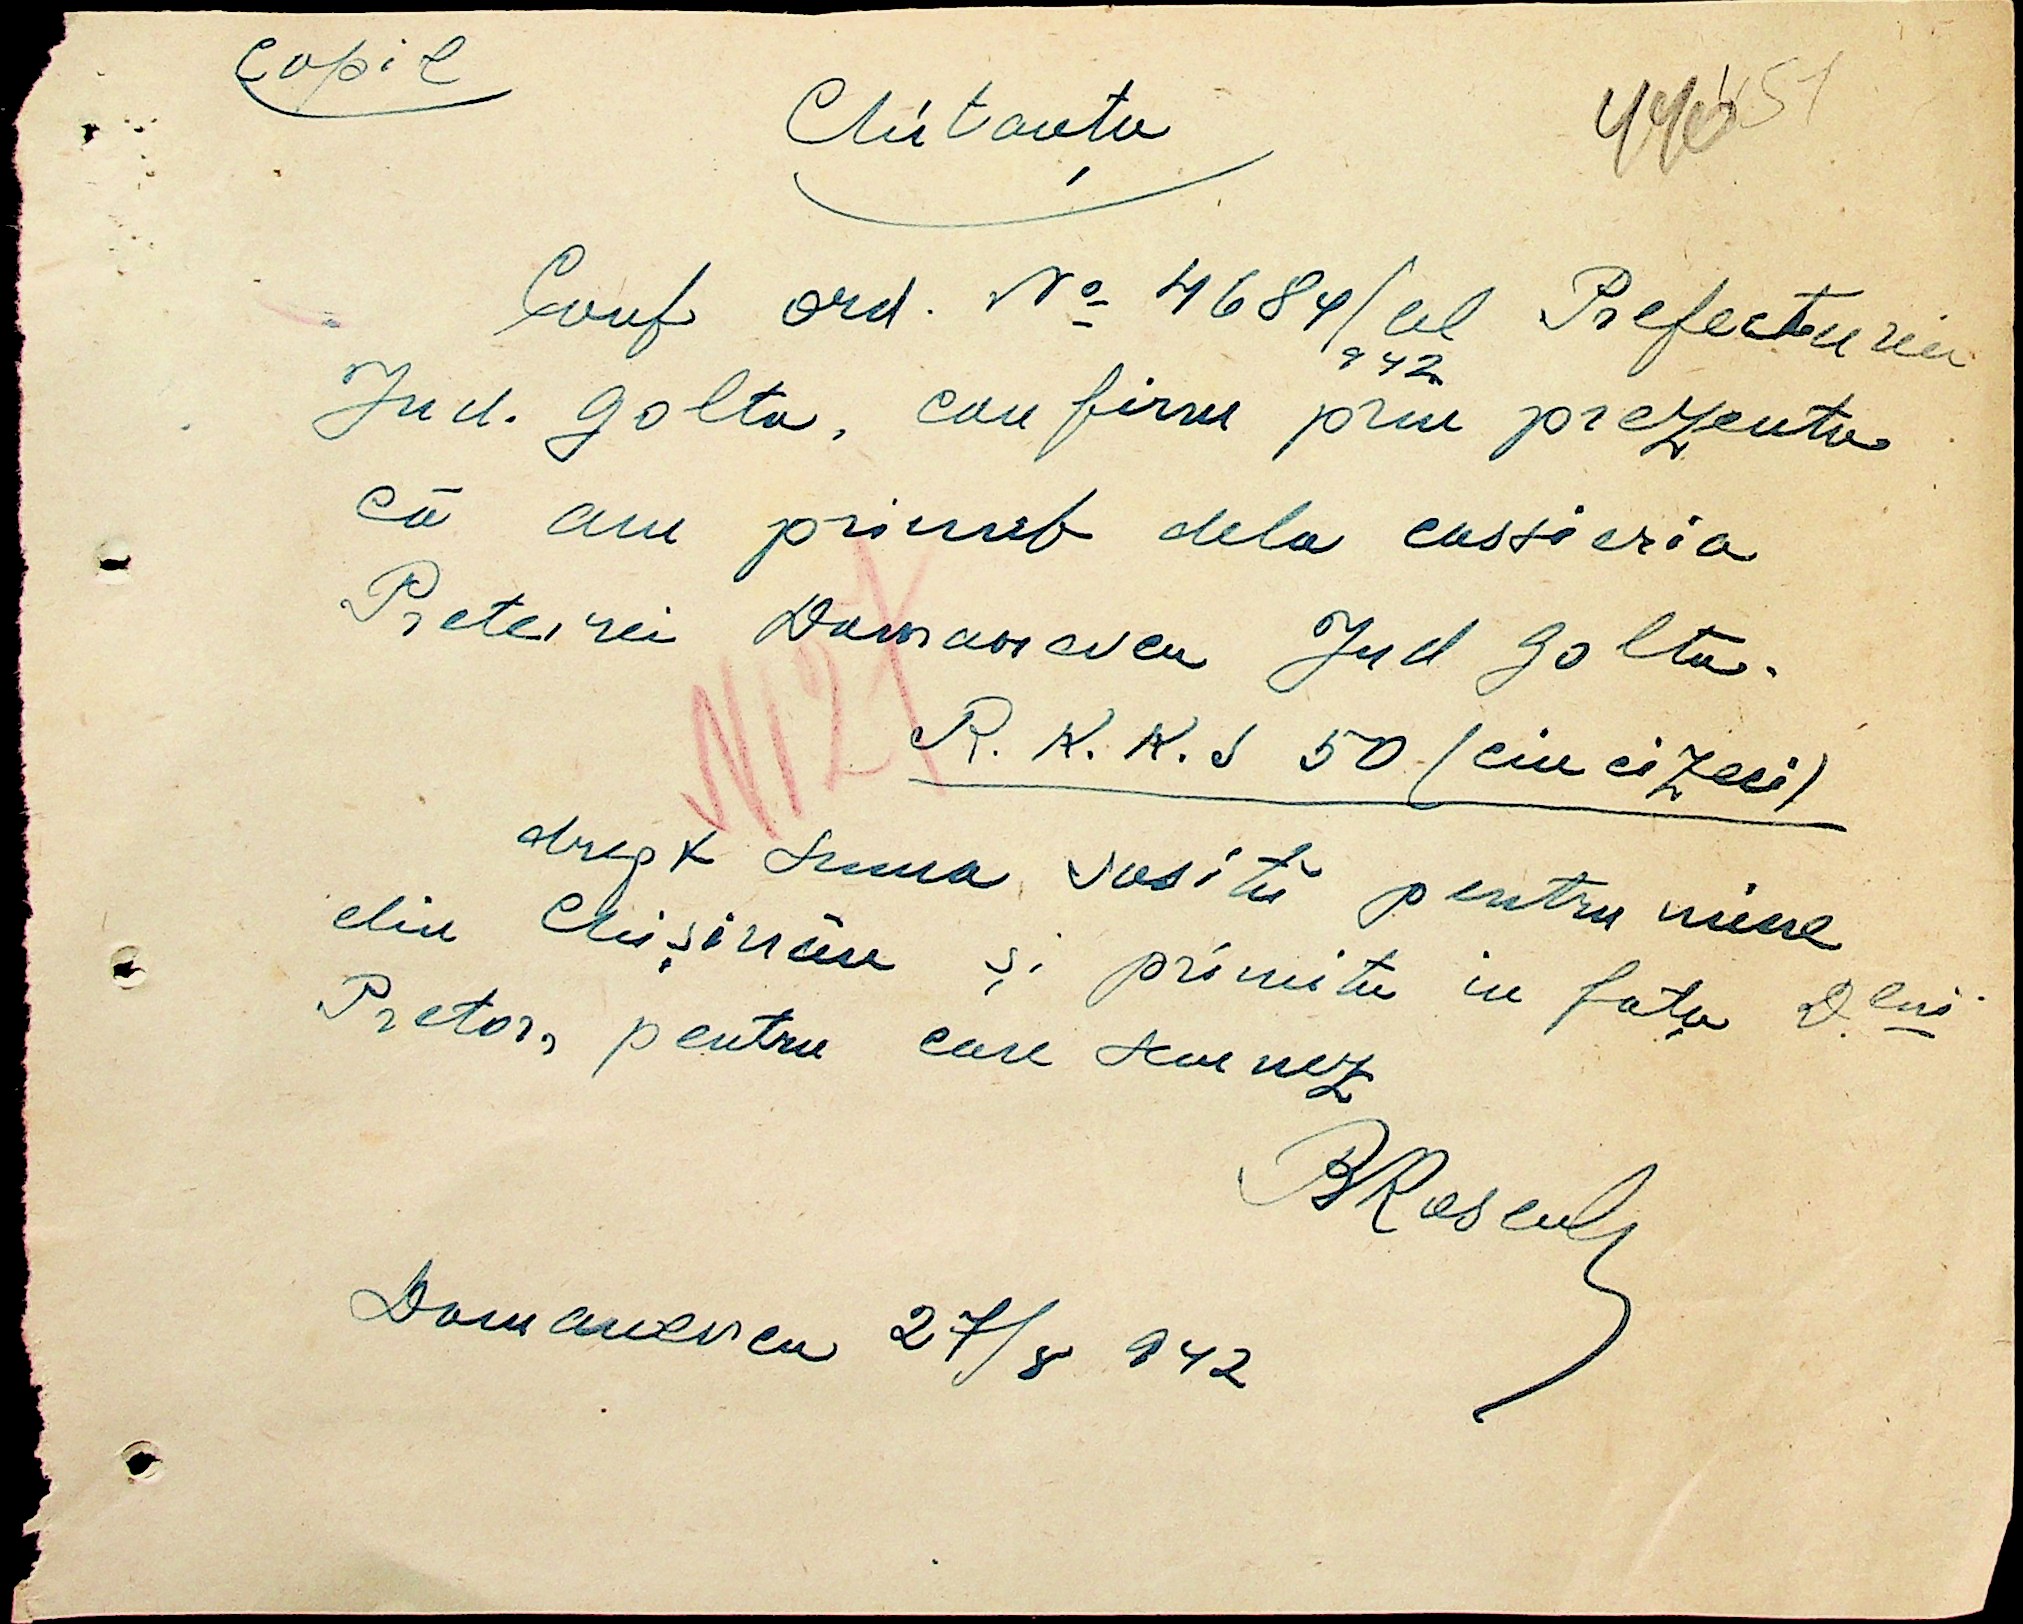 Copie
Chitanța
440 451
Conf ord. No 4684/942 al Prefecturii
Jud. Golta, confirm prin prezenta
că am primit dela cassieria
Preturei Domanevca Jud Golta.
N 127
R.K.K.S 50 (cincizeci)
drept suma sosită pentru mine
din Chișinău și primită in fața D.lui
Pretor, pentru care semnez
Domanevca 27/8 942